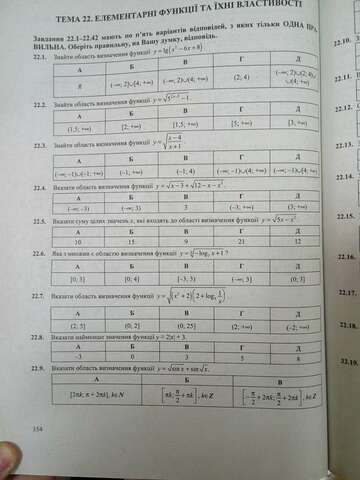 ТЕМА 22. ЕЛЕМЕНТАРНІ ФУНКЦІЇ ТА ЇХНІ ВЛАСТИВОСТІ
Завдання 22.1–22.42 мають по п'ять варіантів відповідей, з яких тільки ОДНА ПРА-
ВИЛЬНА. Оберіть правильну, на Вашу думку, відповідь.
22.1. Знайти область визначення функції y = lg(x² − 6x + 8).
А Б В Г Д
R (−∞; 2)∪(4; +∞) (−∞; 2)∪(4; +∞) (2; 4) (−∞; 2)∪(2; 4)∪ ∪(4; +∞)
22.2. Знайти область визначення функції
А Б В Г Д
(1,5; +∞) [2; +∞) [1,5; +∞) [5; +∞) [3; +∞)
22.3. Знайти область визначення функції y = √((x−4)/(x+1)).
А Б В Г Д
(−∞; −1)∪(−1; +∞) (−1; +∞) (−1; 4)
22.4. Вказати область визначення функції y = √(x−3) + √(12−x−x²).
А Б В Г Д
(−∞; −3) (−∞; 3) 3 (−3; +∞) (3; +∞)
22.5. Вказати суму цілих значень x, які входять до області визначення функції y = √(5x − x²).
А Б В Г Д
10 15 9 21 12
22.6. Яка з множин є областю визначення функції
А Б В Г Д
[0; 3] [0; 4] [−3; 3) (−∞; 3] (0; 3]
22.7. Вказати область визначення функції
А Б В Г Д
(2; 5] (0; 2] (0; 25] [2; +∞) (−2; +∞)
22.8. Вказати найменше значення функції y = 2|x| + 3.
А Б В Г Д
−3 0 3 5 8
22.9. Вказати область визначення функції y = √sin x + sin√x.
А Б В
[2πk; π + 2πk], k∈N [πk; π/2 + πk], k∈Z [−π/2 + 2πk; π/2 + 2πk], k∈Z
154
22.10.
22.11.
22.12.
22.13.
22.14.
22.15.
22.16.
22.17.
22.18.
22.19.